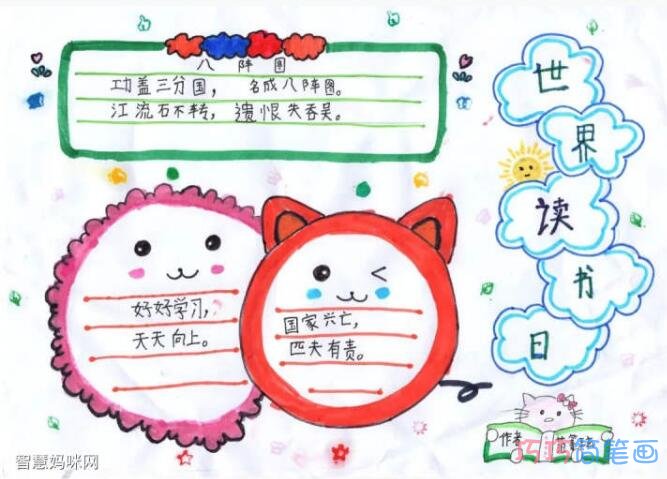 八阵图
功盖三分国，名成八阵图。
江流石不转，遗恨失吞吴。
世
界
读
书
日
好好学习，
天天向上。
国家兴亡，
匹夫有责。
作者
智慧妈咪网
巧巧简笔画